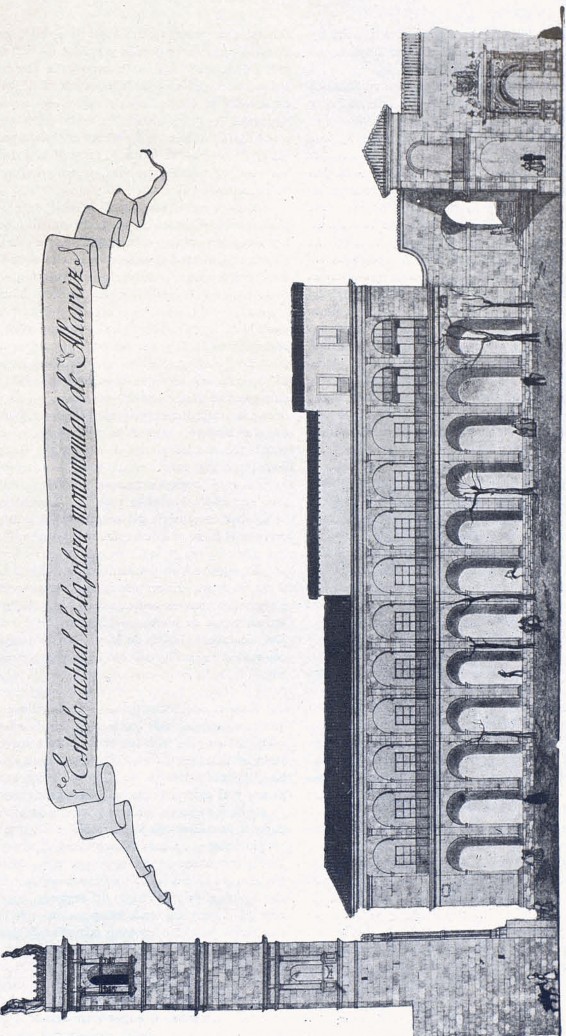 Estado actual de la plaza monumental de Alcaraz